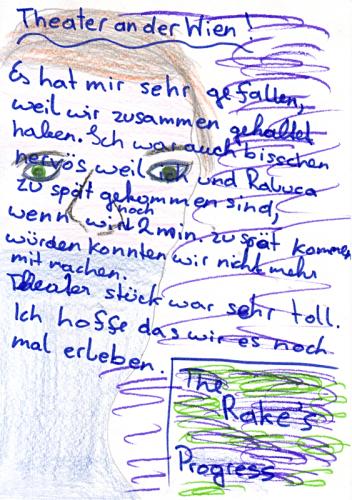 Theater an der Wien!
Es hat mir sehr gefallen,
weil wir zusammen gehaltet
haben. Ich war auch bisschen
nervös weil ich und Raluca
zu spät gekommen sind,
wenn wir noch 2 min. zu spät kommen
würden konnten wir nicht mehr
mit machen.
Theater stück war sehr toll.
Ich hoffe das wir es noch
mal erleben.
The
Rake's
Progress